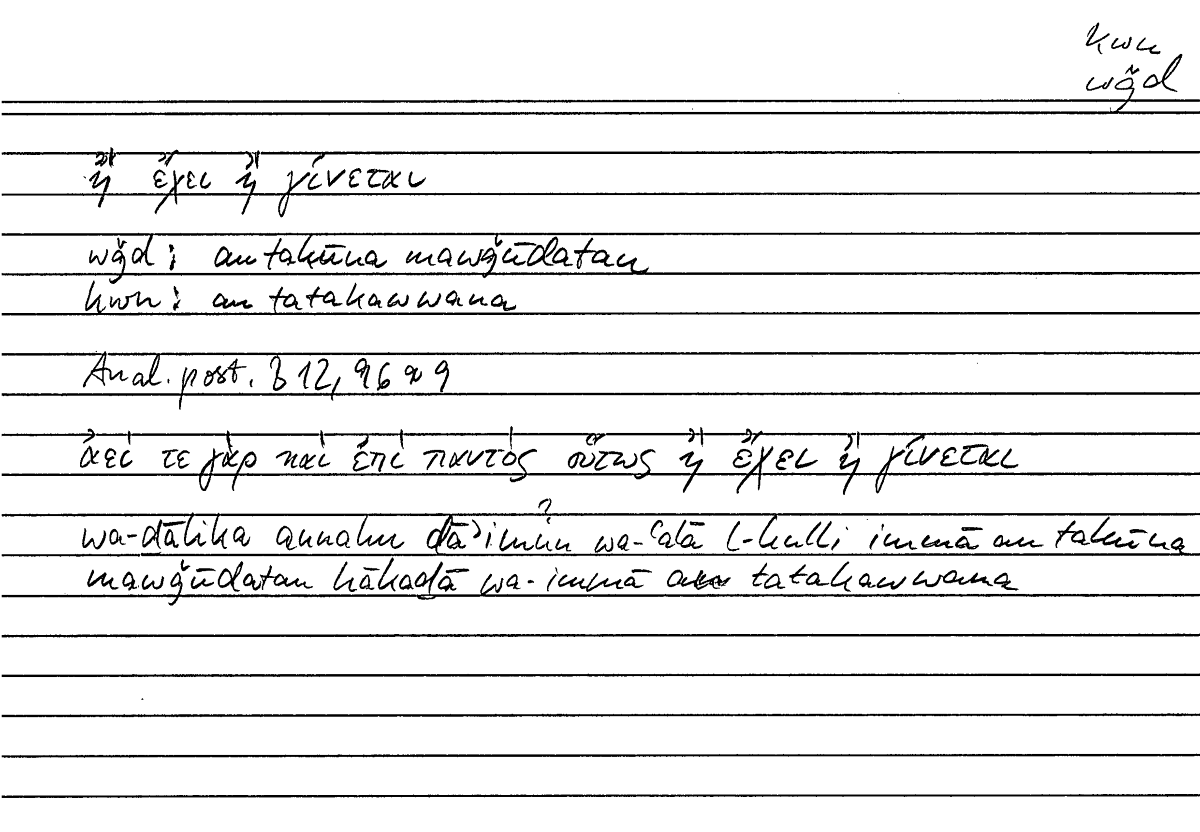 kwn
wǧd
ἢ ἔχει ἢ γίνεται
wǧd : an takūna mawǧūdatan
kwn : an tatakawwana
Anal. post. B 12, 96 a 9
ἀεί τε γὰρ καὶ ἐπὶ παντὸς οὕτως ἢ ἔχει ἢ γίνεται
wa-ḏālika annahu dāʾimun wa-ʿalā l-kulli immā an takūna
mawǧūdatan hākaḏā wa-immā an tatakawwana